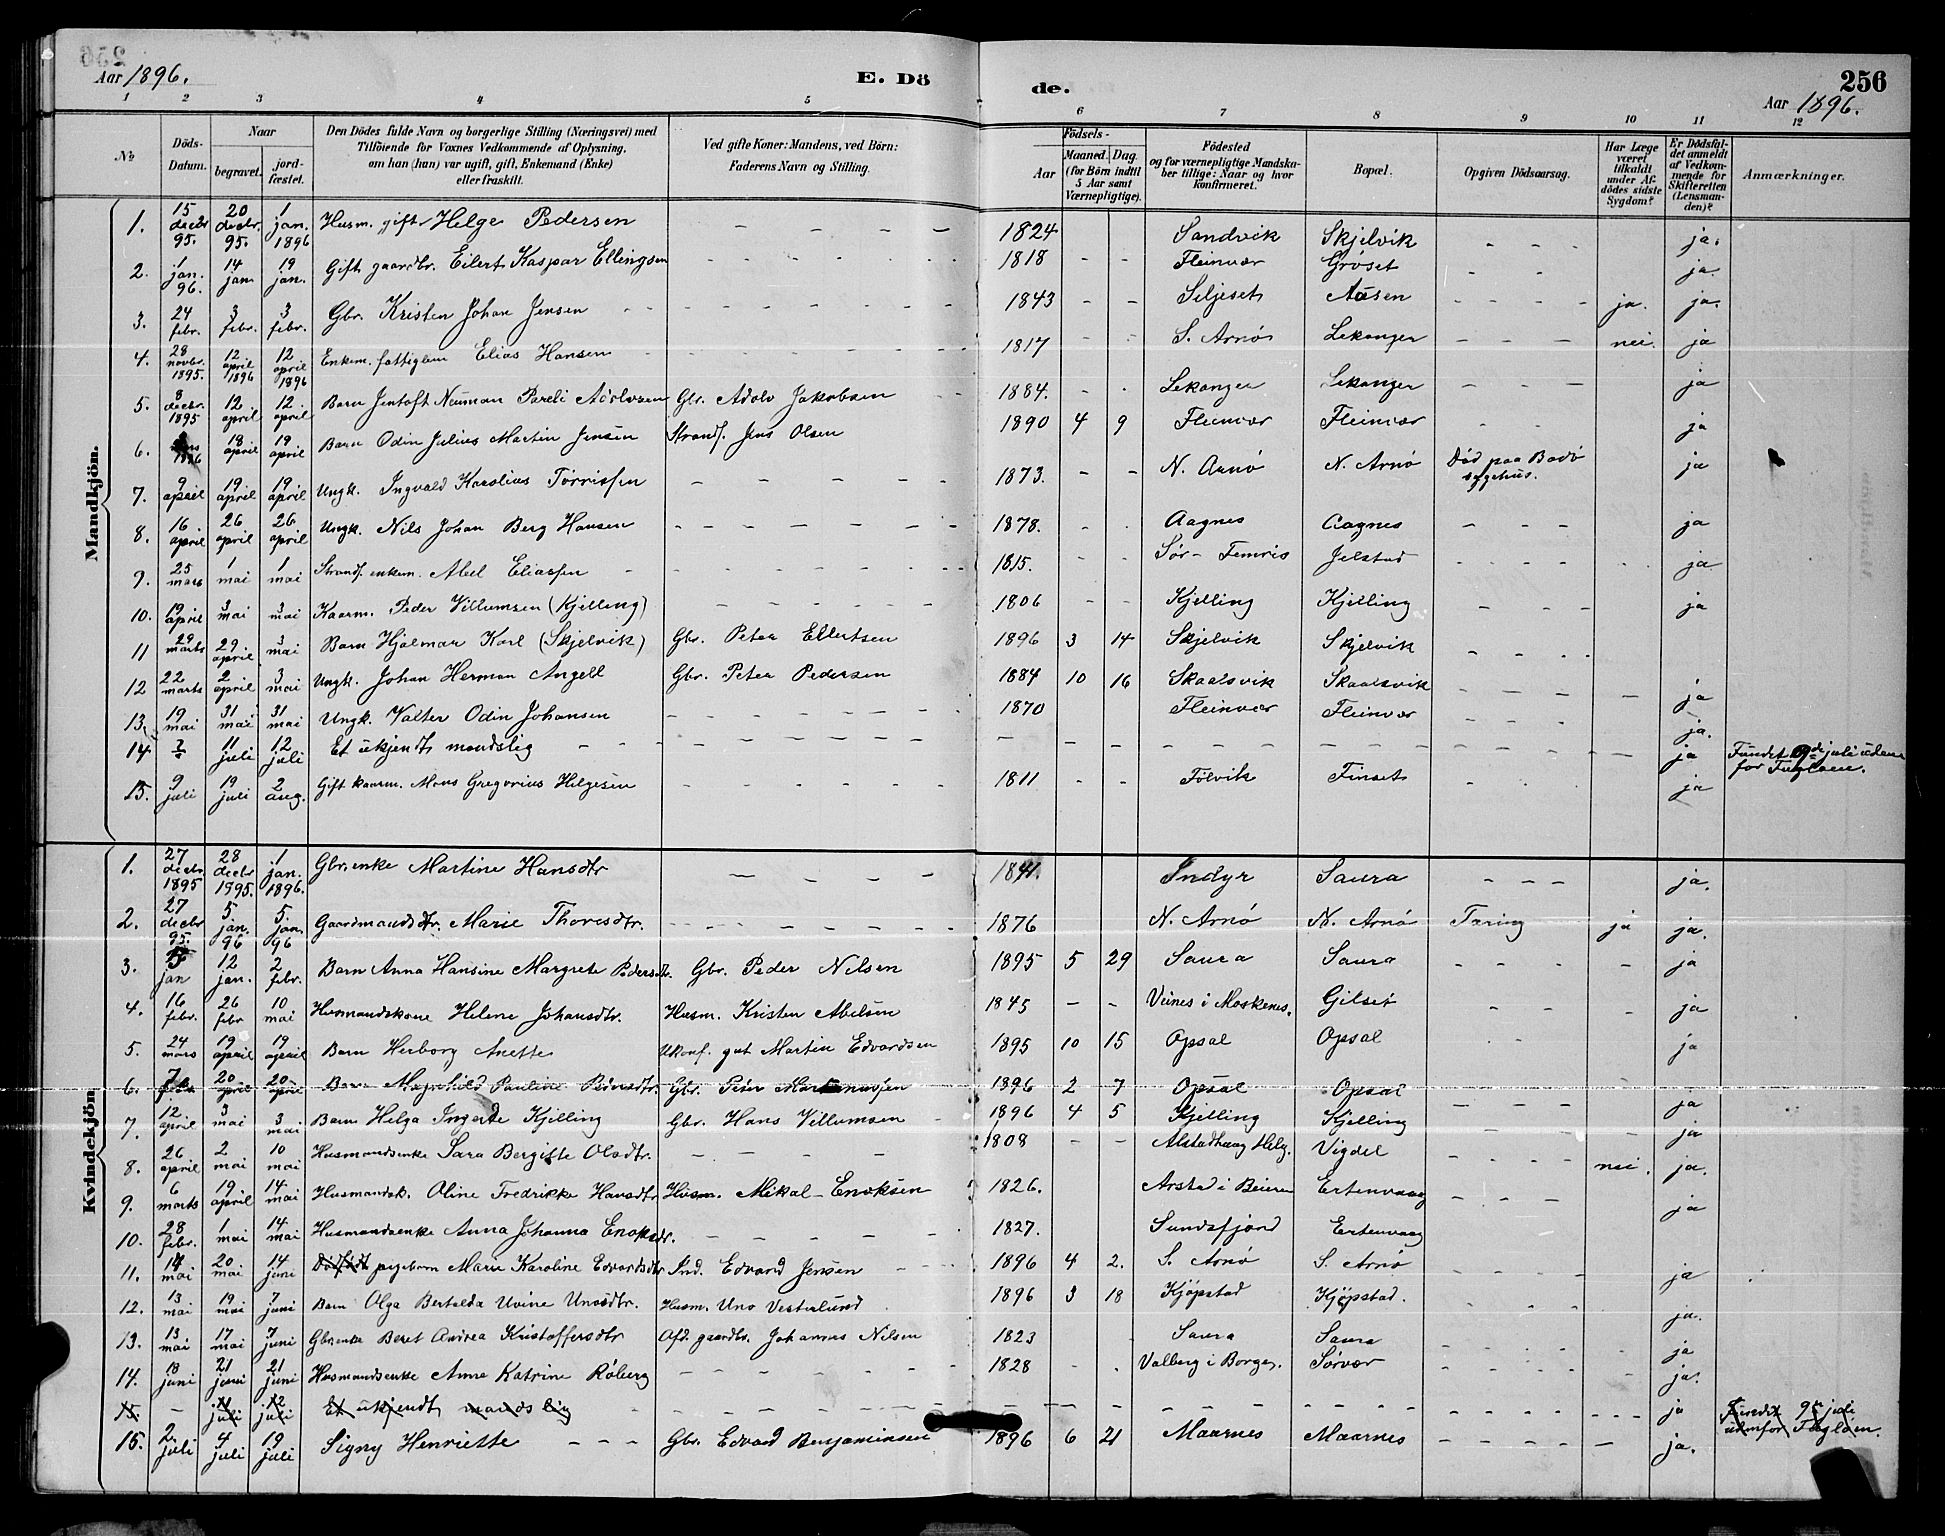 Aar 1896. E. Dö de. 256
Aar 1896.
1 2 3 4 5 6 7 8 9 10 11 12
No. Döds-Datum. Naar begravet. jordfæstet. Den Dödes fulde Navn og borgerlige Stilling (Næringsvei) med Tilföiende for Voxnes Vedkommende af Oplysning, om han (hun) var ugift, gift, Enkemand (Enke) eller fraskilt. Ved gifte Koner: Mandens, ved Börn: Faderens Navn og Stilling. Födsels- Aar Maaned. Dag. (for Börn indtil 5 Aar samt Værnepligtige). Födested og for værnepligtige Mandskaber tillige: Naar og hvor konfirmeret. Bopæl. Opgiven Dödsaarsag. Har Læge været tilkaldt under Afdödes sidste Sygdom? Er Dödsfaldet anmeldt af Vedkommende for Skifteretten (Lensmanden)? Anmærkninger.
Mandkjön.
1. 15 decbr 95. 20 decbr. 95. 1 jan. 1896 Husm. gift Helge Pedersen 1824 Sandvik Skjelvik ja.
2. 1 jan. 96. 14 jan 19 jan. Gift gaardbr. Eilert Kaspar Ellingsen 1818 Fleinvær Gröset ja.
3. 24 febr. 3 febr. 3 febr. Gbr. Kristen Johan Jensen 1843 Seljeset Aasen ja. ja.
4. 28 novbr. 1895. 12 april 1896 12 april 1896 Enkem. fattiglem Elias Hansen 1817 S. Arnö Lekanger nei. ja
5. 8 decbr. 1895 12 april 12 april Barn Jentoft Neuman Pareli Adolvsen Gbr. Adolv Jakobsen 1884. Lekanger Lekanger ja
6. 1896 18 april 19 april Barn Odin Julius Martin Jensen Strands. Jens Olsen 1890 4 9 Fleinvær Fleinvær ja
7. 9 april 19 april 19 april Ungk. Ingvald Karolius Torrissen 1873. N. Arnö N. Arnö Död paa Bodö sygehus. ja
8. 16 april 26 april 26 april Ungk. Nils Johan Berg Hansen 1878. Aagnes Aagnes ja
9. 25 mars 1 mai 1 mai Strands. enkem. Abel Eliassen 1815. Sör- Femris Jelstad ja
10. 19 april 3 mai 3 mai Kaarm. Peder Villumsen (Kjelling) 1806 Kjelling Kjelling ja
11 29 marts 29 april 3 mai Barn Hjalmar Karl (Skjelvik) Gbr. Peter Ellertsen 1896 3 14 Skjelvik Skjelvik
12 22 marts 2 april 3 mai Ungk. Johan Herman Angell Gbr. Peter Pedersen 1884 10 16 Skaalsvik Skaalsvik ja
13. 19 mai 31 mai 31 mai Ungk. Valter Odin Johansen 1870 Fleinvær Fleinvær ja.
14. ? 11 juli 12 juli Et ukjendt mandslig ja Fundet 9de juli uden for Fugløen.
15. 9 juli 19 juli 2 aug. Gift kaarm. Mons Gregorius Helgesen 1811 Tölvik Finset ja
Kvindekjön
1. 27 decbr 1895 28 decbr 1895. 1 jan. 1896. Gbr. enke Martine Hansdtr 1841. Indyr Saura ja.
2. 27 decbr 95. 5 jan. 96 5. jan. 96 Gaardmandsdtr. Marie Thoresdtr. 1876 N. Arnö N. Arnö Tæring ja ja.
3. jan 12 jan. 2 febr. Barn Anna Hansine Margrete Pedersdtr. Gbr. Peder Nilsen 1895 5 29 Saura Saura ja
4. 16 febr. 26 febr 10 mai Husmandskone Helene Johansdtr. Husm. Kristen Abelsen 1845 Veines i Moskenes. Gilset ja
5. 24 mars 19 april 19 april Barn Herborg Anette Ukonf. gut Martin Edvardsen 1895 10 15 Opsal Opsal ja
6. 7 20 april 20 april Barn Magnhild Pauline Pedersdtr. Gbr. Peter 1896 2 7 Opsal Opsal ja
7. 12. april 3 mai 3 mai Barn Helga Ingerte Kjelling Gbr. Hans Villumsen 1896 4 5 Kjelling Kjelling ja
8. 26 april 2 mai 10 mai Husmandsenke Sara Bergitte Olsdtr. 1808 Alstadhaug Helg. Vigdel nei. ja.
9. 6 marts 19 april 14 mai Husmandsk. Oline Fredrikke Hansdtr Husm. Mikal Enoksen 1826. Arstad i Beieren Ertenvaag ja
10. 28 febr. 1 mai 14 mai Husmandsenke Anna Johanna Enoksdtr. 1827. Sundsfjord Ertenvaag
11. 14 mai 20 mai 14 juni Dödfödt pigebarn Marie Karoline Edvardsdtr Ind. Edvard Jensen 1896 4 2. S. Arnö S. Arnö ja
12. 13 mai 19 mai 7 juni Barn Olga Bertalda Uvine Unosdtr. Husm. Uno Vesterlund 1896 3 18 Kjöpstad Kjöpstad. ja.
13. 13 mai 17 mai 7 juni Gbr. enke Beret Andrea Kristoffersdtr Afd. gaardbr. Johannes Nilsen 1823 Saura Saura ja
14. 13 juni 21 juni 21 juni Husmandsenke Anne Katrine Röberg 1828 Valberg i Borge. Sörvær ja.
15. 11 juli 12 juli Et ukjendt mands lig ja Fundet 9de juli udenfor Fugløen.
15. 2. juli 4 juli 19 juli Signy Henriette Gbr. Edvard Benjaminsen 1896 6 21 Maarnes Maarnes ja.